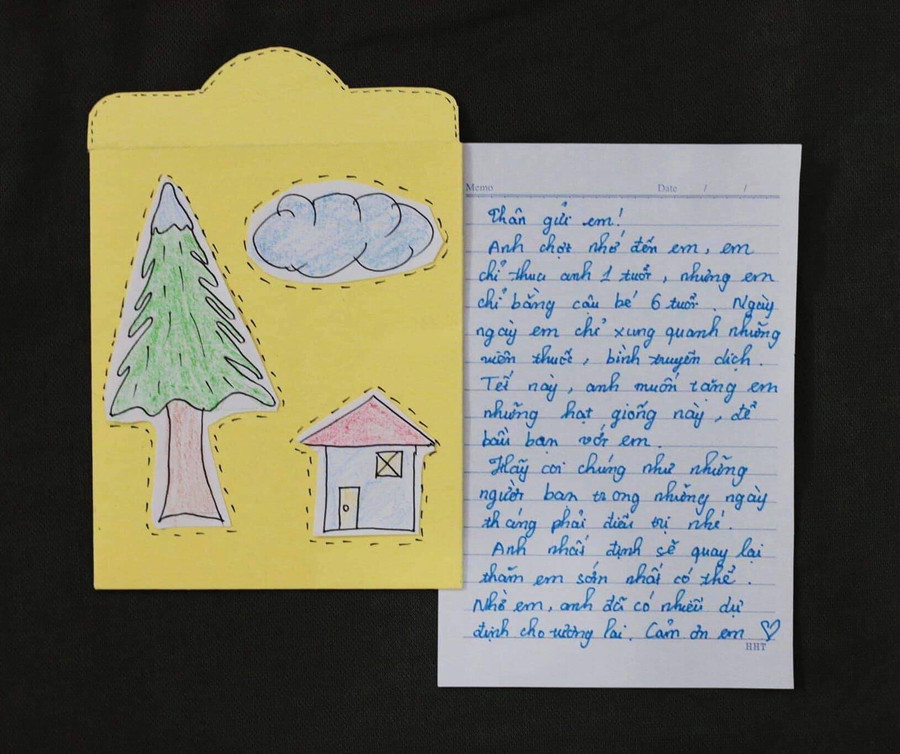 Memo Date / /
Thân gửi em!
Anh chợt nhớ đến em, em
chỉ thua anh 1 tuổi, nhưng em
chỉ bằng cậu bé 6 tuổi. Ngày
ngày em chỉ xung quanh những
viên thuốc, bình truyền dịch.
Tết này, anh muốn tặng em
những hạt giống này, để
bầu bạn với em.
Hãy coi chúng như những
người bạn trong những ngày
tháng phải điều trị nhé.
Anh nhất định sẽ quay lại
thăm em sớm nhất có thể.
Nhờ em, anh đã có nhiều dự
định cho tương lai. Cảm ơn em ♡
HHT